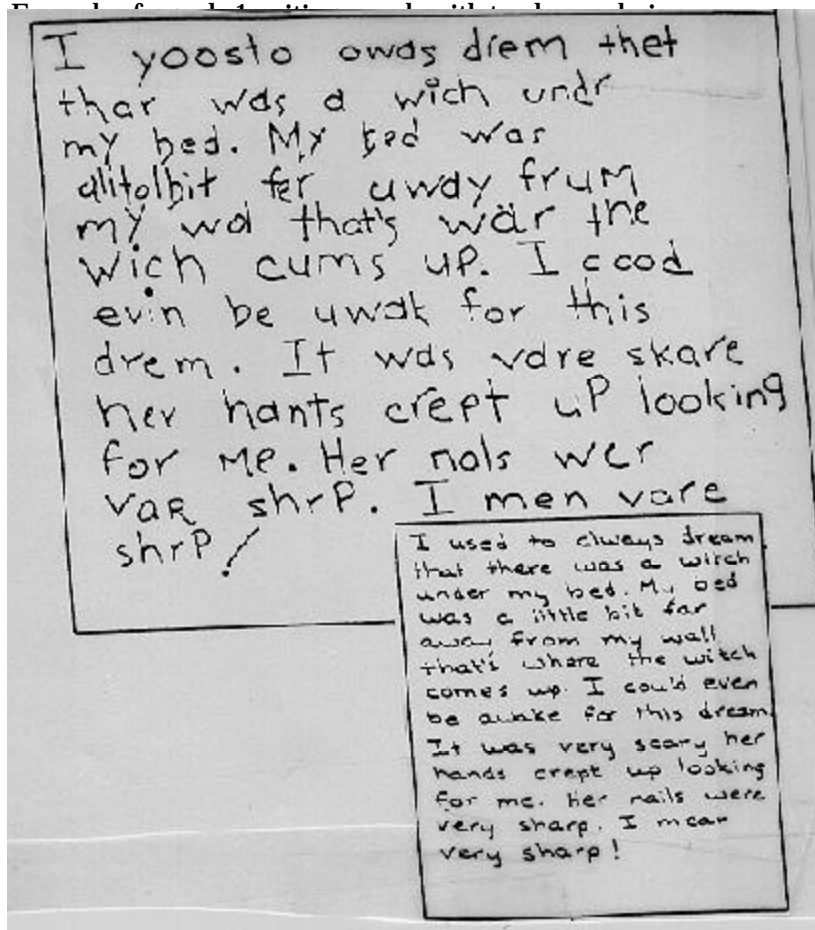 I yoosto owas drem thet
thar was a wich undr
my bed. My bed was
alitolbit fer uway frum
my wol that's war the
wich cums up. I cood
evin be uwak for this
drem. It was vare skare
her hants crept up looking
for me. Her nals wer
var shrp. I men vare
shrp!
I used to always dream
that there was a witch
under my bed. My bed
was a little bit far
away from my wall
that's where the witch
comes up. I could even
be awake for this dream
It was very scary her
hands crept up looking
for me. Her nails were
very sharp. I mean
very sharp!